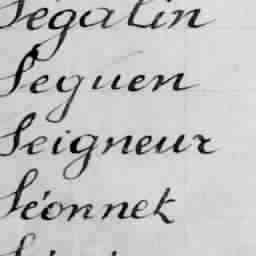 Ségalin
Seguen
Seigneur
Séonnet